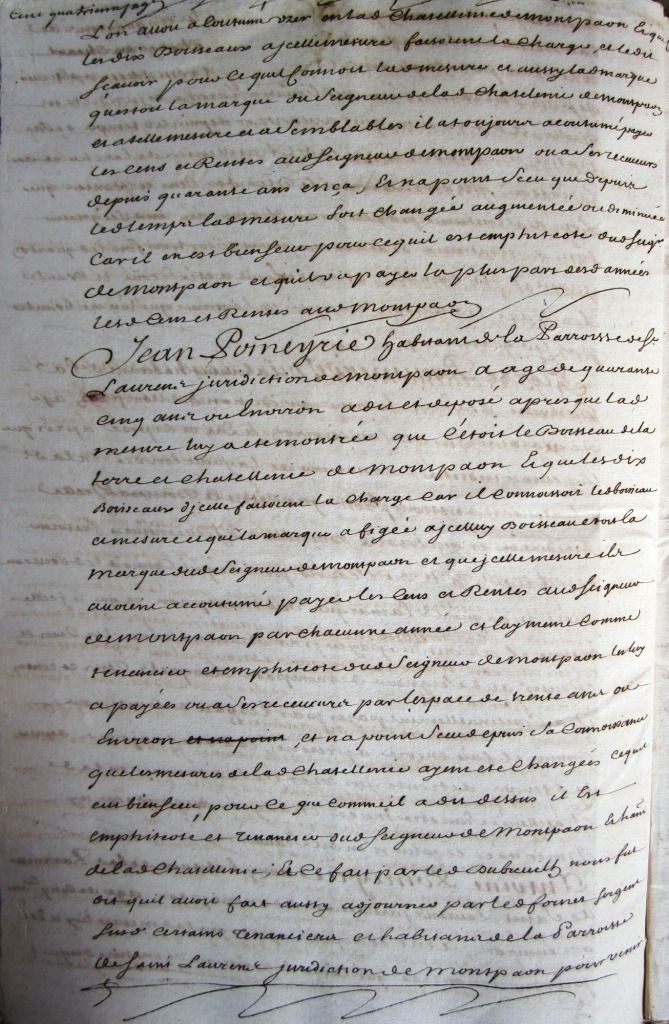 L'on avoit acoutumé user en lad Chatellenie de montpaon Et que
les dix Boisseaux d'jcelle mesure faisoient la Charge, et le dit
sçavoir pour ce quil Connoit lad mesure et aussy lad marque
quest oit la marque du Seigneur de lad Chatelenie de montpaon
et a telle mesure et a semblables il a toujours acoutumé payer
les Cens et Rentes aud Seigneur de montpaon ou a ses receveurs
depuis quarante ans en ça, Et na point sceu que depuis
led temps lad mesure soit Changée augmentée ou diminuée
Car il en est bien seur pour ce quil est emphiteote dud seigr
de montpaon et quil va payer la plus part desd années
lesd Cens et Rentes aud montpaon
Jean Pomeyrie habitant de la Parroisse de St
Laurens jurisdiction de montpaon aagé de quarante
Cinq ans ou Environ a dit et deposé apres que lad
mesure luy a eté montrée que C'étoit le Boisseau de la
terre et Chatellenie de montpaon Et que les dix
Boisseaux d'jcelle faisoient la Charge Car il Connoissoit led boisseau
et mesure et que la marque afigée a jcelluy Boisseau etoit la
marque dud Seigneur de montpaon et que jcelle mesure ils
avoient accoutumé payer les Cens et Rentes aud Seigneur
de montpaon par chacunne année et luy meme Comme
tenancier et emphiteote dud Seigneur de montpaon les luy
a payées ou a ses receveurs par l'espace de trente ans ou
Environ et na point, et na point sceu depuis sa Connoissance
que les mesures de lad Chatellenie ayent eté Changées Ce quil
est bien seur, pour Ce que Comme il a dit dessus il Est
emphiteote et tenancier dud Seigneur de Montpaon Et hant
de lad Chatellenie; Et Ce fait par led Dubreuilh nous fut
dit quil avoit fait aussy adjourner par led fornes sergent
susd Certains tenanciers et habitans de la Parroisse
de Saint Laurens jurisdiction de montpaon pour venir